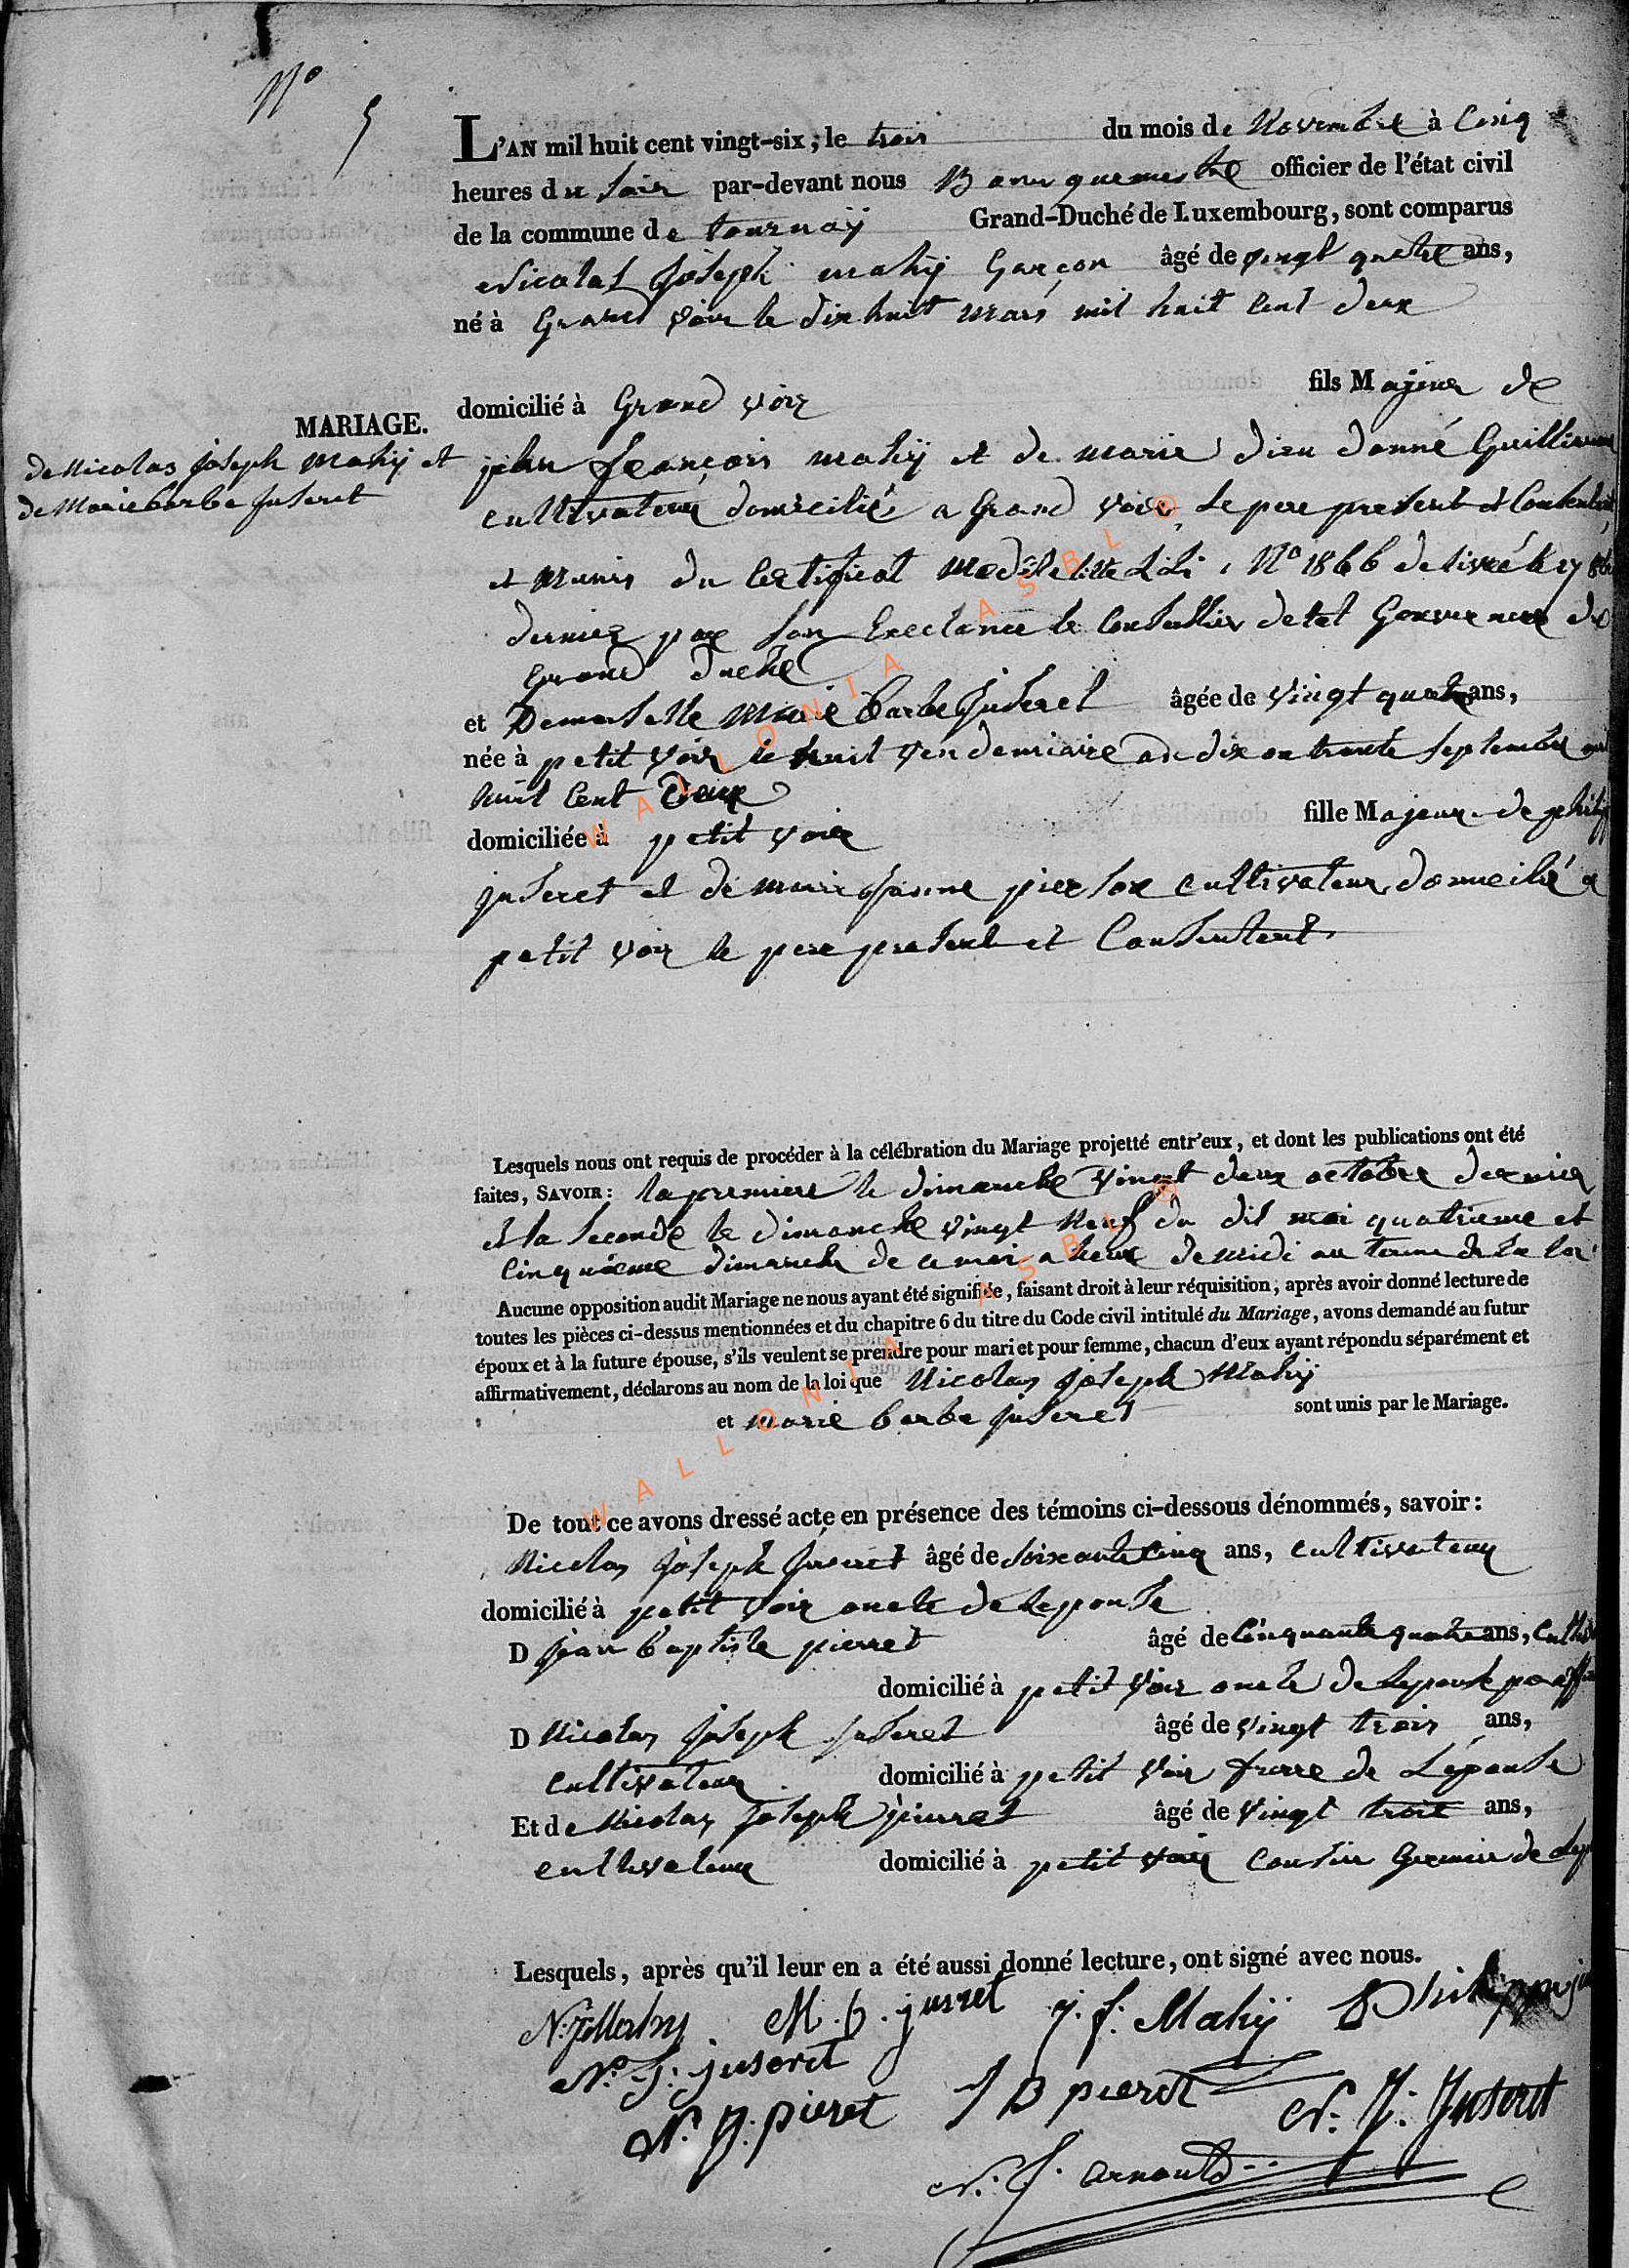 Nº 5
L'AN mil huit cent vingt-six, le trois du mois de Novembre à Cinq
heures du Soir par-devant nous Bourguemestre officier de l'état civil
de la commune de tournaÿ Grand-Duché de Luxembourg, sont comparus
Nicolas Joseph mahÿ Garçon âgé de vingt quatre ans,
né à Grand voir le dix huit mars mil huit Cent deux
domicilié à Grand voir fils Majeur de
MARIAGE.
de Nicolas Joseph Mahÿ et
de Marie barbe juseret
jean françois mahÿ et de marie dieu donné Guilliaume
cultivateur domicilié a Grand voir, le pere present et Consentent,
et Munis du Certificat Nº 1866 delivré le 27 8bre
dernier par Son Exelance le Conseillier detat Gouverneur du
Grand duché
et Demoiselle Marie Barbe Juseret âgée de vingt quatre ans,
née à petit voir le huit vendemiaire an dix ou trente Septembre mil
huit Cent deux
domiciliée à petit voir fille Majeur de philip
juseret et de marie jeanne pierlox cultivateur domicilié a
petit voir le pere present et Consentent.
Lesquels nous ont requis de procéder à la célébration du Mariage projetté entr'eux, et dont les publications ont été
faites, SAVOIR: la premiere le dimanche vingt deux octobre dernier
et la Seconde le dimanche vingt Neuf du dit moi quatrieme et
Cinquieme dimanche de ce moi a heur de midi au terme de la loi
Aucune opposition audit Mariage ne nous ayant été signifiée, faisant droit à leur réquisition, après avoir donné lecture de
toutes les pièces ci-dessus mentionnées et du chapitre 6 du titre du Code civil intitulé du Mariage, avons demandé au futur
époux et à la future épouse, s'ils veulent se prendre pour mari et pour femme, chacun d'eux ayant répondu séparément et
affirmativement, déclarons au nom de la loi que Nicolas Joseph Mahÿ
et marie barbe juseret sont unis par le Mariage.
De tout ce avons dressé acte en présence des témoins ci-dessous dénommés, savoir:
Nicolas Joseph Juseret âgé de Soixante Cinq ans, cultivateur
domicilié à petit voir oncle de lepouse
D jean baptiste pierret âgé de Cinquante quatre ans, Cultiv
domicilié à petit voir oncle de lepouse par affin
D Nicolas Joseph juseret âgé de vingt trois ans,
cultivateur domicilié à petit voir frere de L'épouse
Et de Nicolas Joseph pierret âgé de vingt trois ans,
cultivateur domicilié à petit voir Cousin Germain de lep
Lesquels, après qu'il leur en a été aussi donné lecture, ont signé avec nous.
N: J Mahy M. b. jusret j. f. Mahÿ Philippe ju
N. J: juseret
N. J. pieret J B pieret N. J. Juseret
N. J. Arnould
WALLONIA ASBL ®
WALLONIA ASBL ®